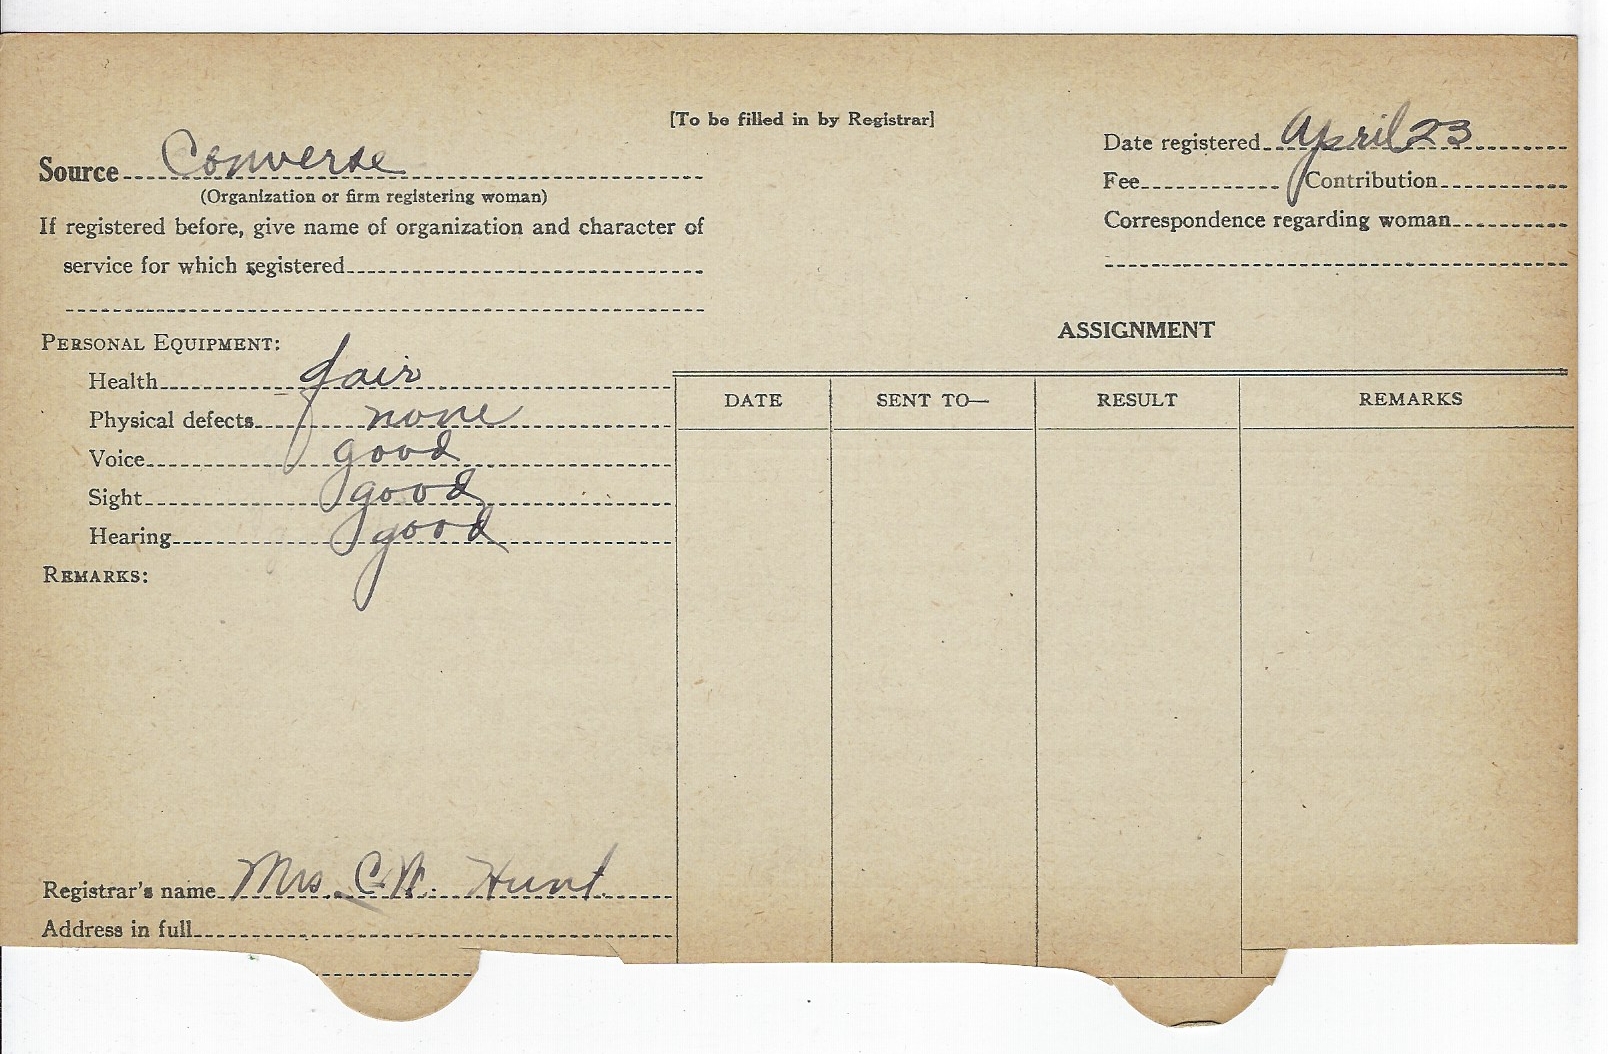 [To be filled in by Registrar]
Source Converse
(Organization or firm registering woman)
If registered before, give name of organization and character of
service for which registered
Date registered April 23
Fee Contribution
Correspondence regarding woman
PERSONAL EQUIPMENT:
Health fair
Physical defects none
Voice good
Sight good
Hearing good
REMARKS:
Registrar's name Mrs. C. W. Hunt.
Address in full
ASSIGNMENT
DATE SENT TO— RESULT REMARKS